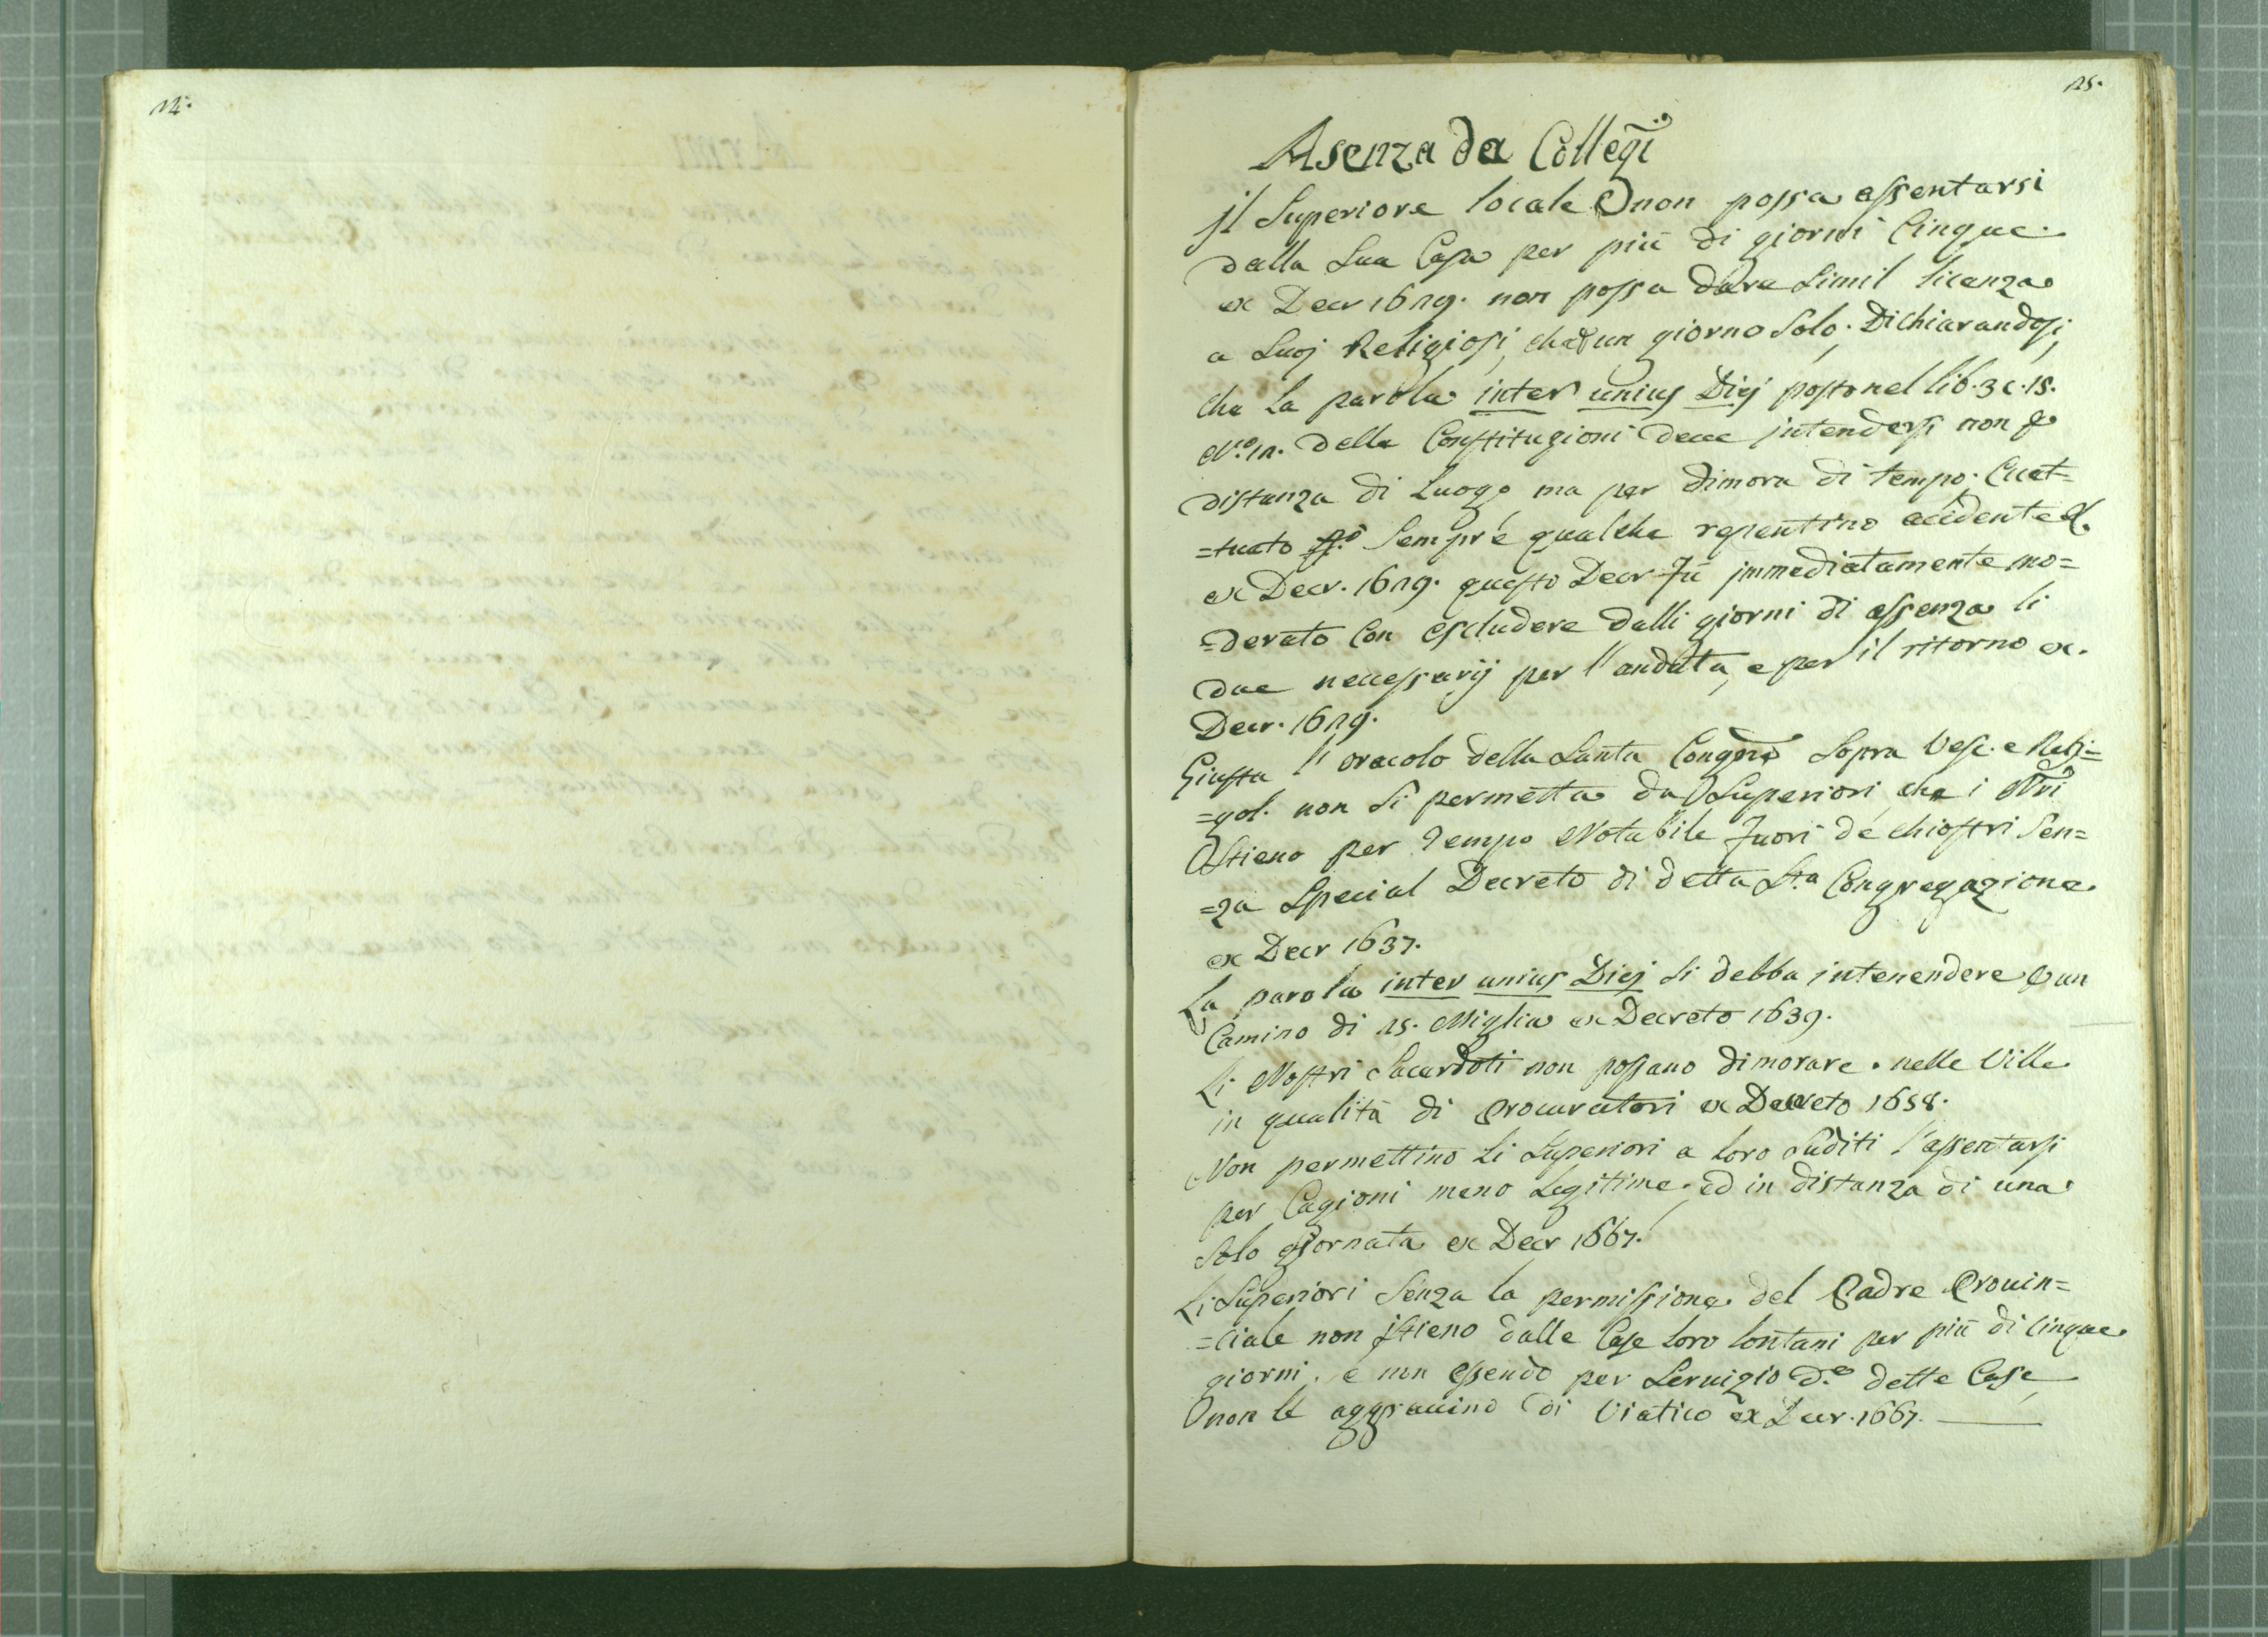 14.
15.
Asenza da Collegi
Jl Superiore locale non possa assentarsi
dalla Sua Casa per più di giorni Cinque.
ex Decr 1629. non possa dare Simil licenza
a Suoj Religiosi, che d'un giorno Solo; Dichiarandosi,
che La parola inter unius Diej posto nel lib. 3 c. 15.
N.º 12. delle Constitugioni deve jntendersi non p
distanza di Luogo ma per dimora di tempo; Ecet=
=tuato Sempre qualche repentino accidente &.
ex Decr. 1629. questo Decr fù jmmediatamente mo=
=derato Con escludere dalli giorni di assenza li
due necessarij per l'andata, e per il ritorno ex.
Decr. 1629.
Giusta l'oracolo della Santa Congne Sopra Vesc. e Reg=
=gol. non Si permetta da Superiori che i Nri
Stieno per Tempo Notabile fuori de chiostri Sen=
=za Special Decreto di detta Sta Congregazione.
ex Decr 1637.
La parola inter unius Diej Si debba intenendere p un
Camino di 25. Miglia ex Decreto 1639.
Li Nostri Sacerdoti non possano dimorare. nelle Ville
in qualità di Procuratori ex Decreto 1658.
Non permettino Li Superiori a loro Suditi l'assentarsi
per Cagioni meno Legitime. ed in distanza di una
Solo giornata ex Decr 1667.
Li Superiori Senza la permissione del Padre Provin=
=ciale non Stieno dalle Case Loro lontani per più di cinque
giorni. e non essendo per Servizio dette Case
non le aggravino di Viatico ex Decr. 1667.